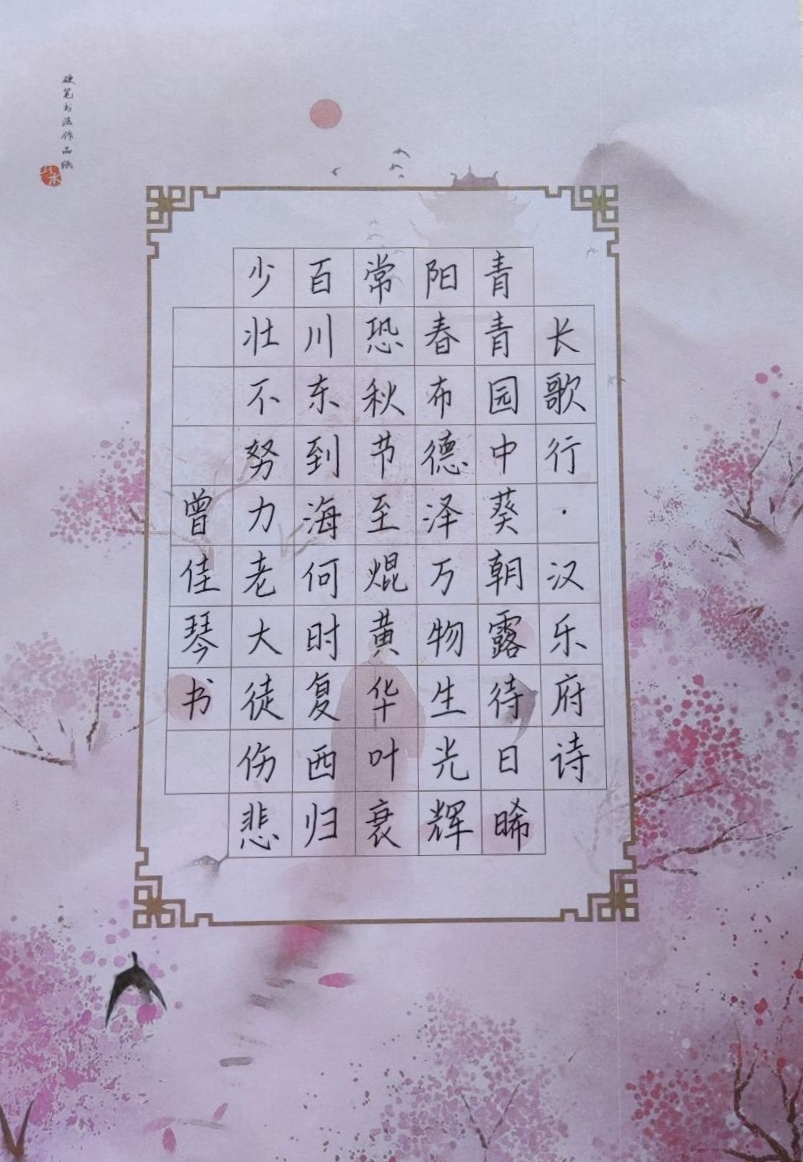 硬笔书法作品纸
长歌行·汉乐府诗
青青园中葵朝露待日晞
阳春布德泽万物生光辉
常恐秋节至焜黄华叶衰
百川东到海何时复西归
少壮不努力老大徒伤悲
曾佳琴书